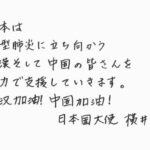 本は
型肺炎に立ち向かう
漢そして中国の皆さんを
力で支援していきます。
汉加油!中国加油!
日本国大使 横井